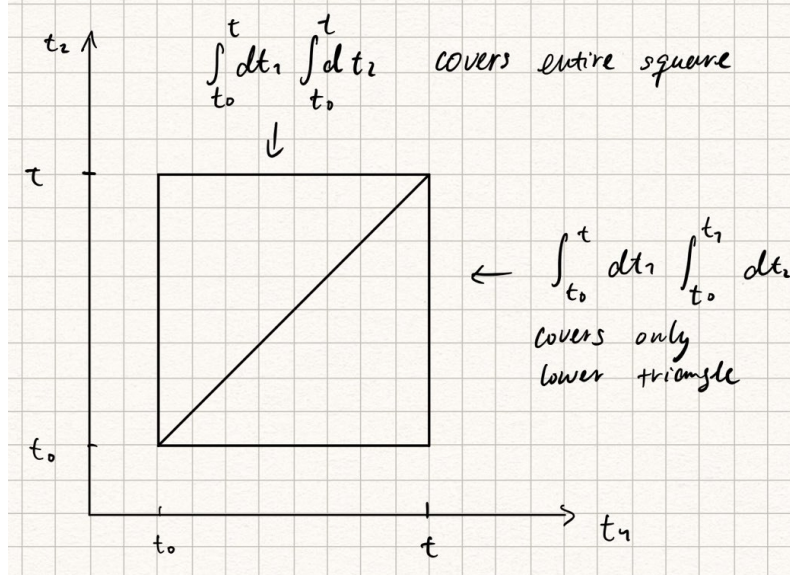 t₂
∫ₜ₀ᵗ dt₁ ∫ₜ₀ᵗ dt₂ covers entire square
t
← ∫ₜ₀ᵗ dt₁ ∫ₜ₀ᵗ¹ dt₂
covers only
lower triangle
t₀
t₀ t t₁